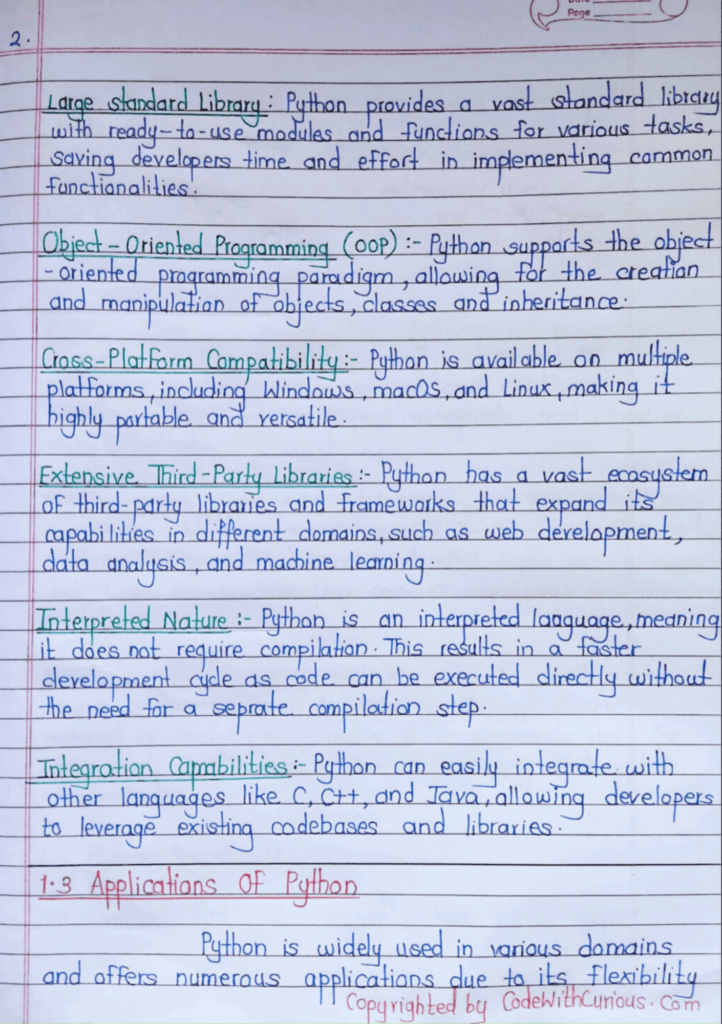 Page
2.
Large standard Library : Python provides a vast standard library
with ready-to-use modules and functions for various tasks,
saving developers time and effort in implementing common
functionalities.
Object - Oriented Programming (OOP) :- Python supports the object
-oriented programming paradigm, allowing for the creation
and manipulation of objects, classes and inheritance.
Cross-Platform Compatibility :- Python is available on multiple
platforms, including Windows, macOS, and Linux, making it
highly portable and versatile.
Extensive Third-Party Libraries :- Python has a vast ecosystem
of third-party libraries and frameworks that expand its
capabilities in different domains, such as web development,
data analysis, and machine learning.
Interpreted Nature :- Python is an interpreted language, meaning
it does not require compilation. This results in a faster
development cycle as code can be executed directly without
the need for a seprate compilation step.
Integration Capabilities :- Python can easily integrate with
other languages like C, C++, and Java, allowing developers
to leverage existing codebases and libraries.
1.3 Applications Of Python
Python is widely used in various domains
and offers numerous applications due to its flexibility
Copyrighted by CodeWithCurious.com